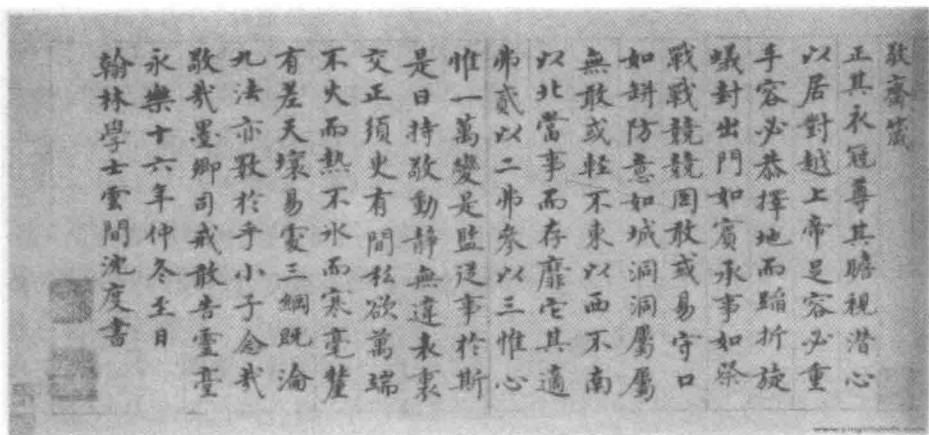 敬齋箴
正其衣冠尊其瞻視潛心
以居對越上帝足容必重
手容必恭擇地而蹈折旋
蟻封出門如賓承事如祭
戰戰兢兢罔敢或易守口
如缾防意如城洞洞屬屬
無敢或輕不東以西不南
以北當事而存靡它其適
弗貳以二弗參以三惟心
惟一萬變是監從事於斯
是日持敬動靜無違表裏
交正須臾有間私欲萬端
不火而熱不冰而寒毫釐
有差天壤易處三綱既淪
九法亦斁於乎小子念哉
敬哉墨卿司戒敢告靈臺
永樂十六年仲冬至日
翰林學士雲間沈度書